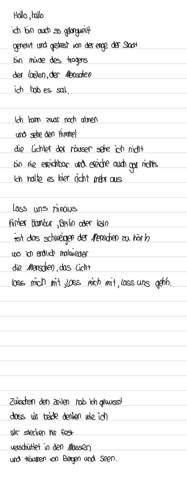 Hallo, hallo
ich bin auch so gelangweilt
genervt und gestresst von der enge der Stadt
bin müde des tragens
der lasten, der Menschen
ich hab es satt.
Ich kann zwar noch atmen
und sehe den Himmel
die Lichter der Häuser sehe ich nicht
bin nie erreichbar und erreiche auch gar nichts
Ich halte es hier nicht mehr aus
Lass uns hinaus
hinter Hamburg, Berlin oder Köln
ist das schweigen der Menschen zu hör'n
wo ich endlich mal wieder
die Menschen, das Licht
lass mich mit, lass mich mit, lass uns gehn.
Zwischen den Zeilen hab ich gewusst
dass wir beide denken wie ich
wir stecken hier fest
verschüttet in den Massen
und träumen von Bergen und Seen.